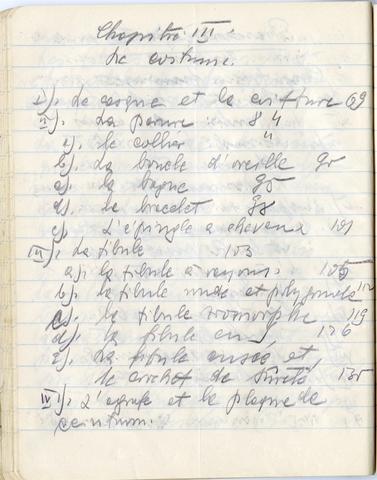 Chapitre III
Le costume.
I). Le casque et la coiffure 69
II). La parure : 84
a). le collier "
b). La boucle d'oreille 90
c). la bague 95
d). le bracelet 98
e). L'épingle a cheveux 101
III). La fibule 103
a). la fibule à rayons. 105
b). la fibule ronde et polygonale 112
c). la fibule zoomorphe 119
d). la fibule en 126
e). La fibule ansée et
le crochet de 135
IV). L'agrafe et la plaque de
ceinture.